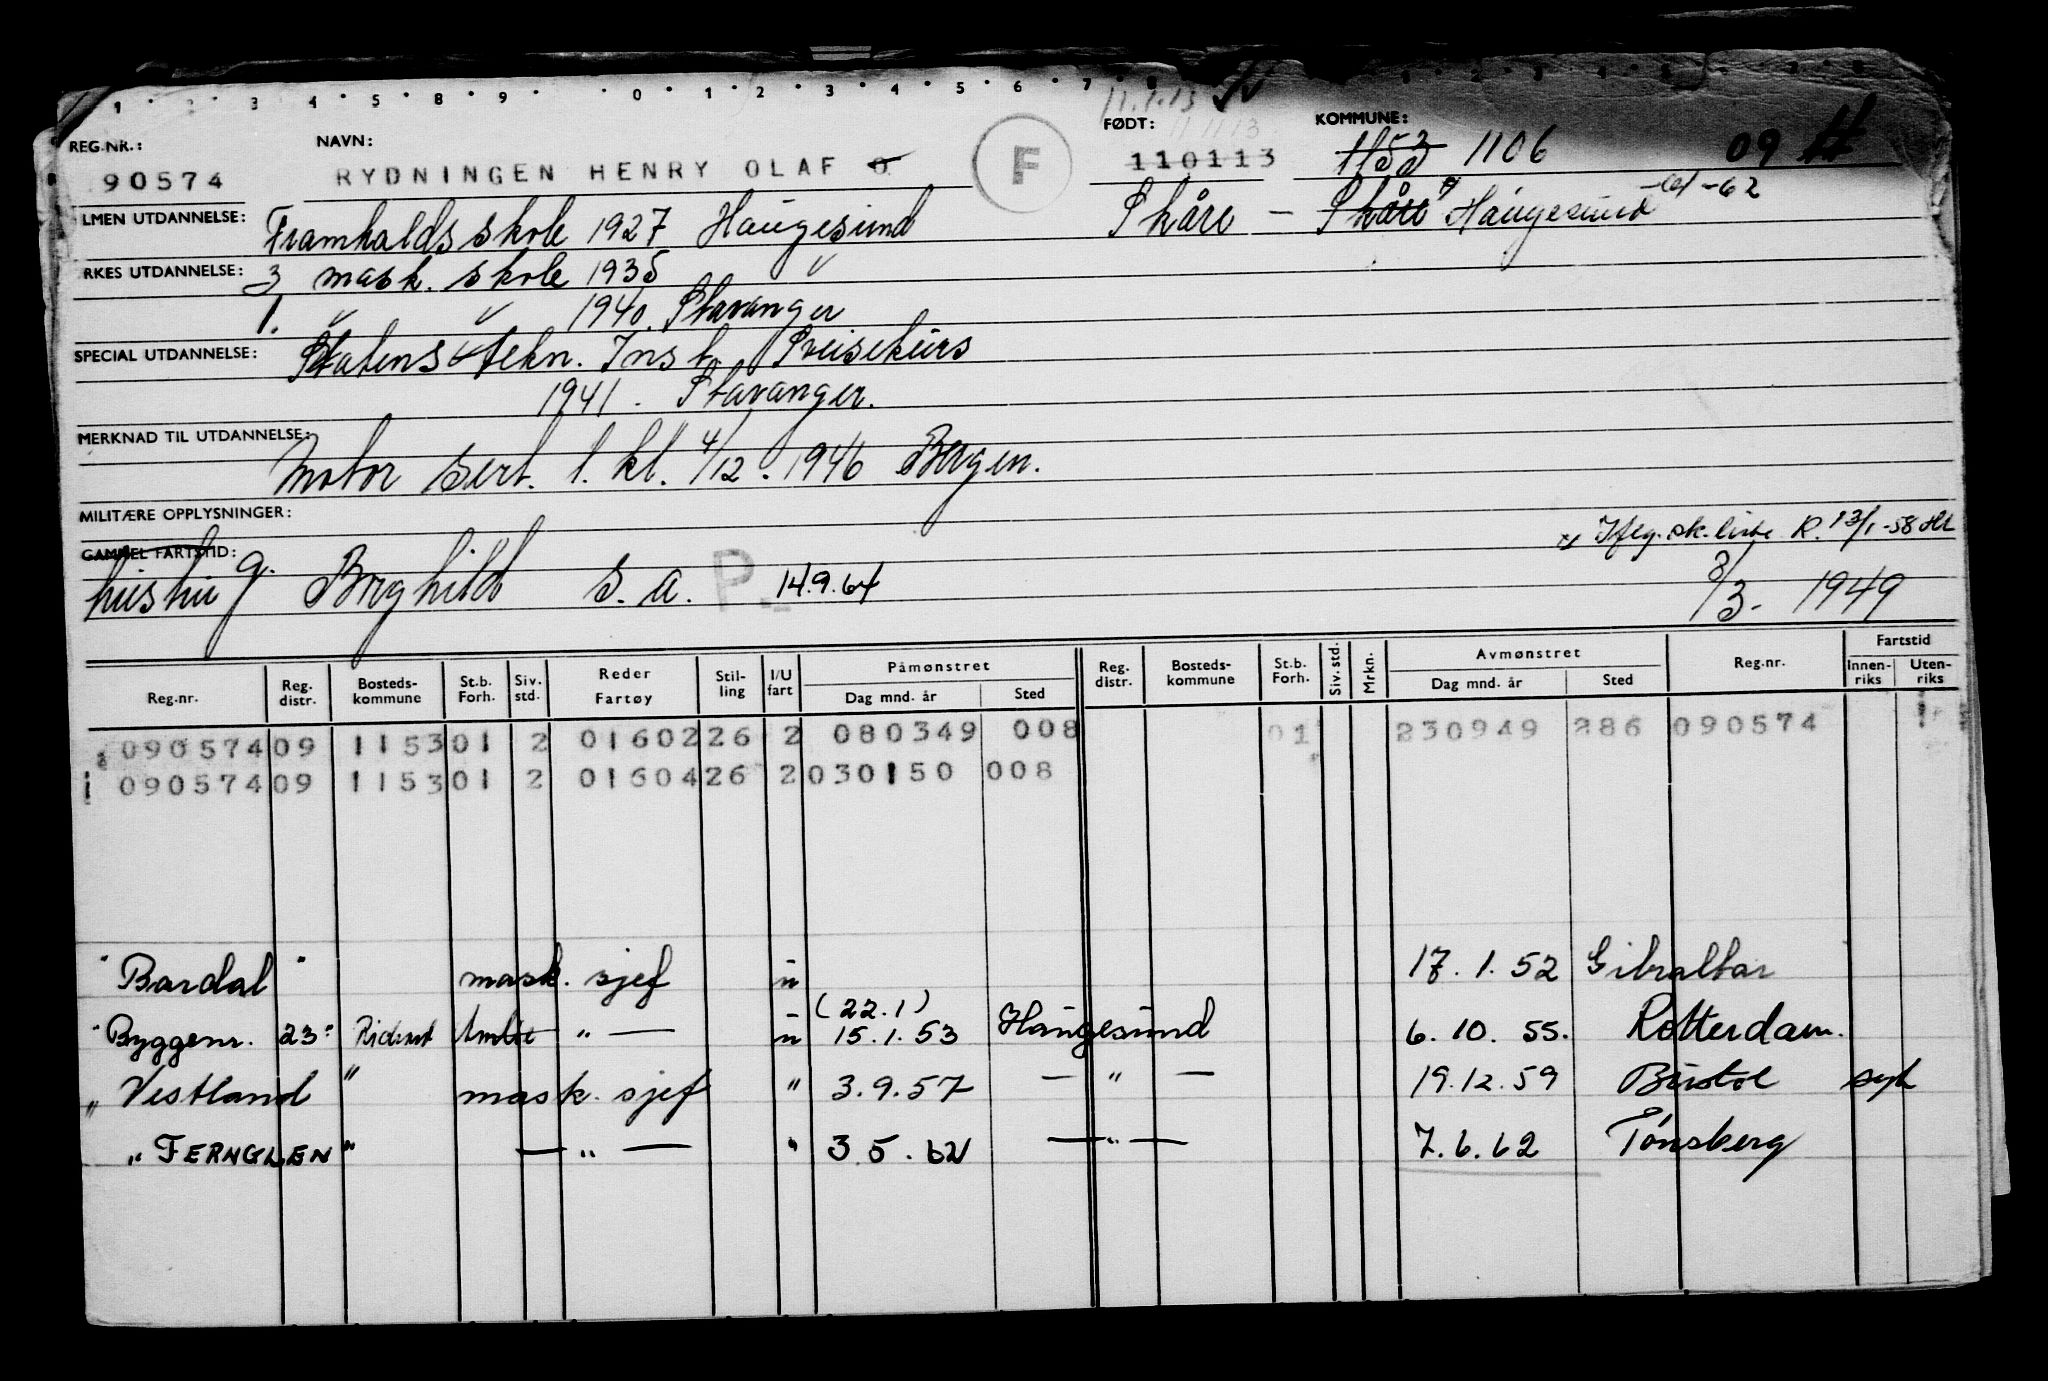 1 · 2 · 3 4 · 5 · 8 · 9 · 0 · 1 · 2 · 3 · 4 · 5 · 6 · 7 · 8
11.1.13
REG.NR.: NAVN: FØDT: KOMMUNE:
90574 RYDNINGEN HENRY OLAF F 110113 1153 1106 09 H
LMEN UTDANNELSE: Framhaldsskole 1927 Haugesund Skåre - Skåre Haugesund -62
RKES UTDANNELSE: 3 mask. skole 1935 "
1. " " 1940. Stavanger
SPECIAL UTDANNELSE: Statens tekn. Inst. Sveisekurs
1941. Stavanger.
MERKNAD TIL UTDANNELSE:
Motor sert. 1. kl. 4/12. 1946 Bergen.
MILITÆRE OPPLYSNINGER:
x Iflg. sk. liste R. 13/1-58 HL
GAMMEL FARTSTID:
hustru g. Borghild s.a. P 14.9.64 8/3. 1949
Reg.nr. Reg. distr. Bosteds-kommune St.b. Forh. Siv. std. Reder Fartøy Stil-ling I/U fart Påmønstret Dag mnd. år Sted Reg. distr. Bosteds-kommune St.b. Forh. Siv. std. Mrkn. Avmønstret Dag mnd. år Sted Reg.nr. Fartstid Innen-riks Uten-riks
090574 09 1153 01 2 01602 26 2 080349 008 01 230949 286 090574
090574 09 1153 01 2 01604 26 2 030150 008
"Bardal" mask. sjef u 17.1.52 Gibraltar
(22.1)
"Byggenr. 23" - " - u 15.1.53 Haugesund 6.10.55. Rotterdam.
"Vestland" mask. sjef " 3.9.57 - " - 19.12.59 Bristol syk
"FERNGLEN" - " - " 3.5.62 - " - 7.6.62 Tønsberg